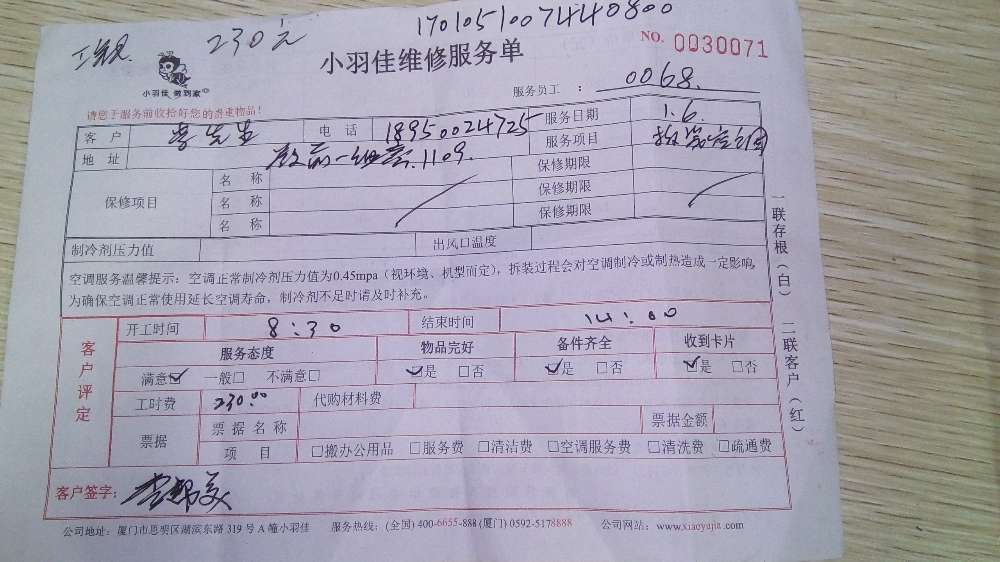 230元 17010510074440800
小羽佳 做到家
小羽佳维修服务单
NO. 0030071
服务员工 : 0068.
请您于服务前收拾好您的贵重物品！
客户 李先生 电话 18950024725 服务日期 1.6.
地址 1109. 服务项目
保修项目 名称 保修期限
名称 保修期限
名称 保修期限
制冷剂压力值 出风口温度
空调服务温馨提示：空调正常制冷剂压力值为0.45mpa（视环境、机型而定），拆装过程会对空调制冷或制热造成一定影响，
为确保空调正常使用延长空调寿命，制冷剂不足时请及时补充。
客户评定
开工时间 8:30 结束时间 14:00
服务态度 物品完好 备件齐全 收到卡片
满意☑ 一般□ 不满意□ ☑是 □否 ☑是 □否 ☑是 □否
工时费 230.00 代购材料费
票据 票据名称 票据金额
项目 □搬办公用品 □服务费 □清洁费 □空调服务费 □清洗费 □疏通费
客户签字：
公司地址：厦门市思明区湖滨东路 319 号 A 幢小羽佳 服务热线：(全国) 400-6655-888 (厦门) 0592-5178888 公司网站：www.xiaoyujia.com
一联存根（白） 二联客户（红）